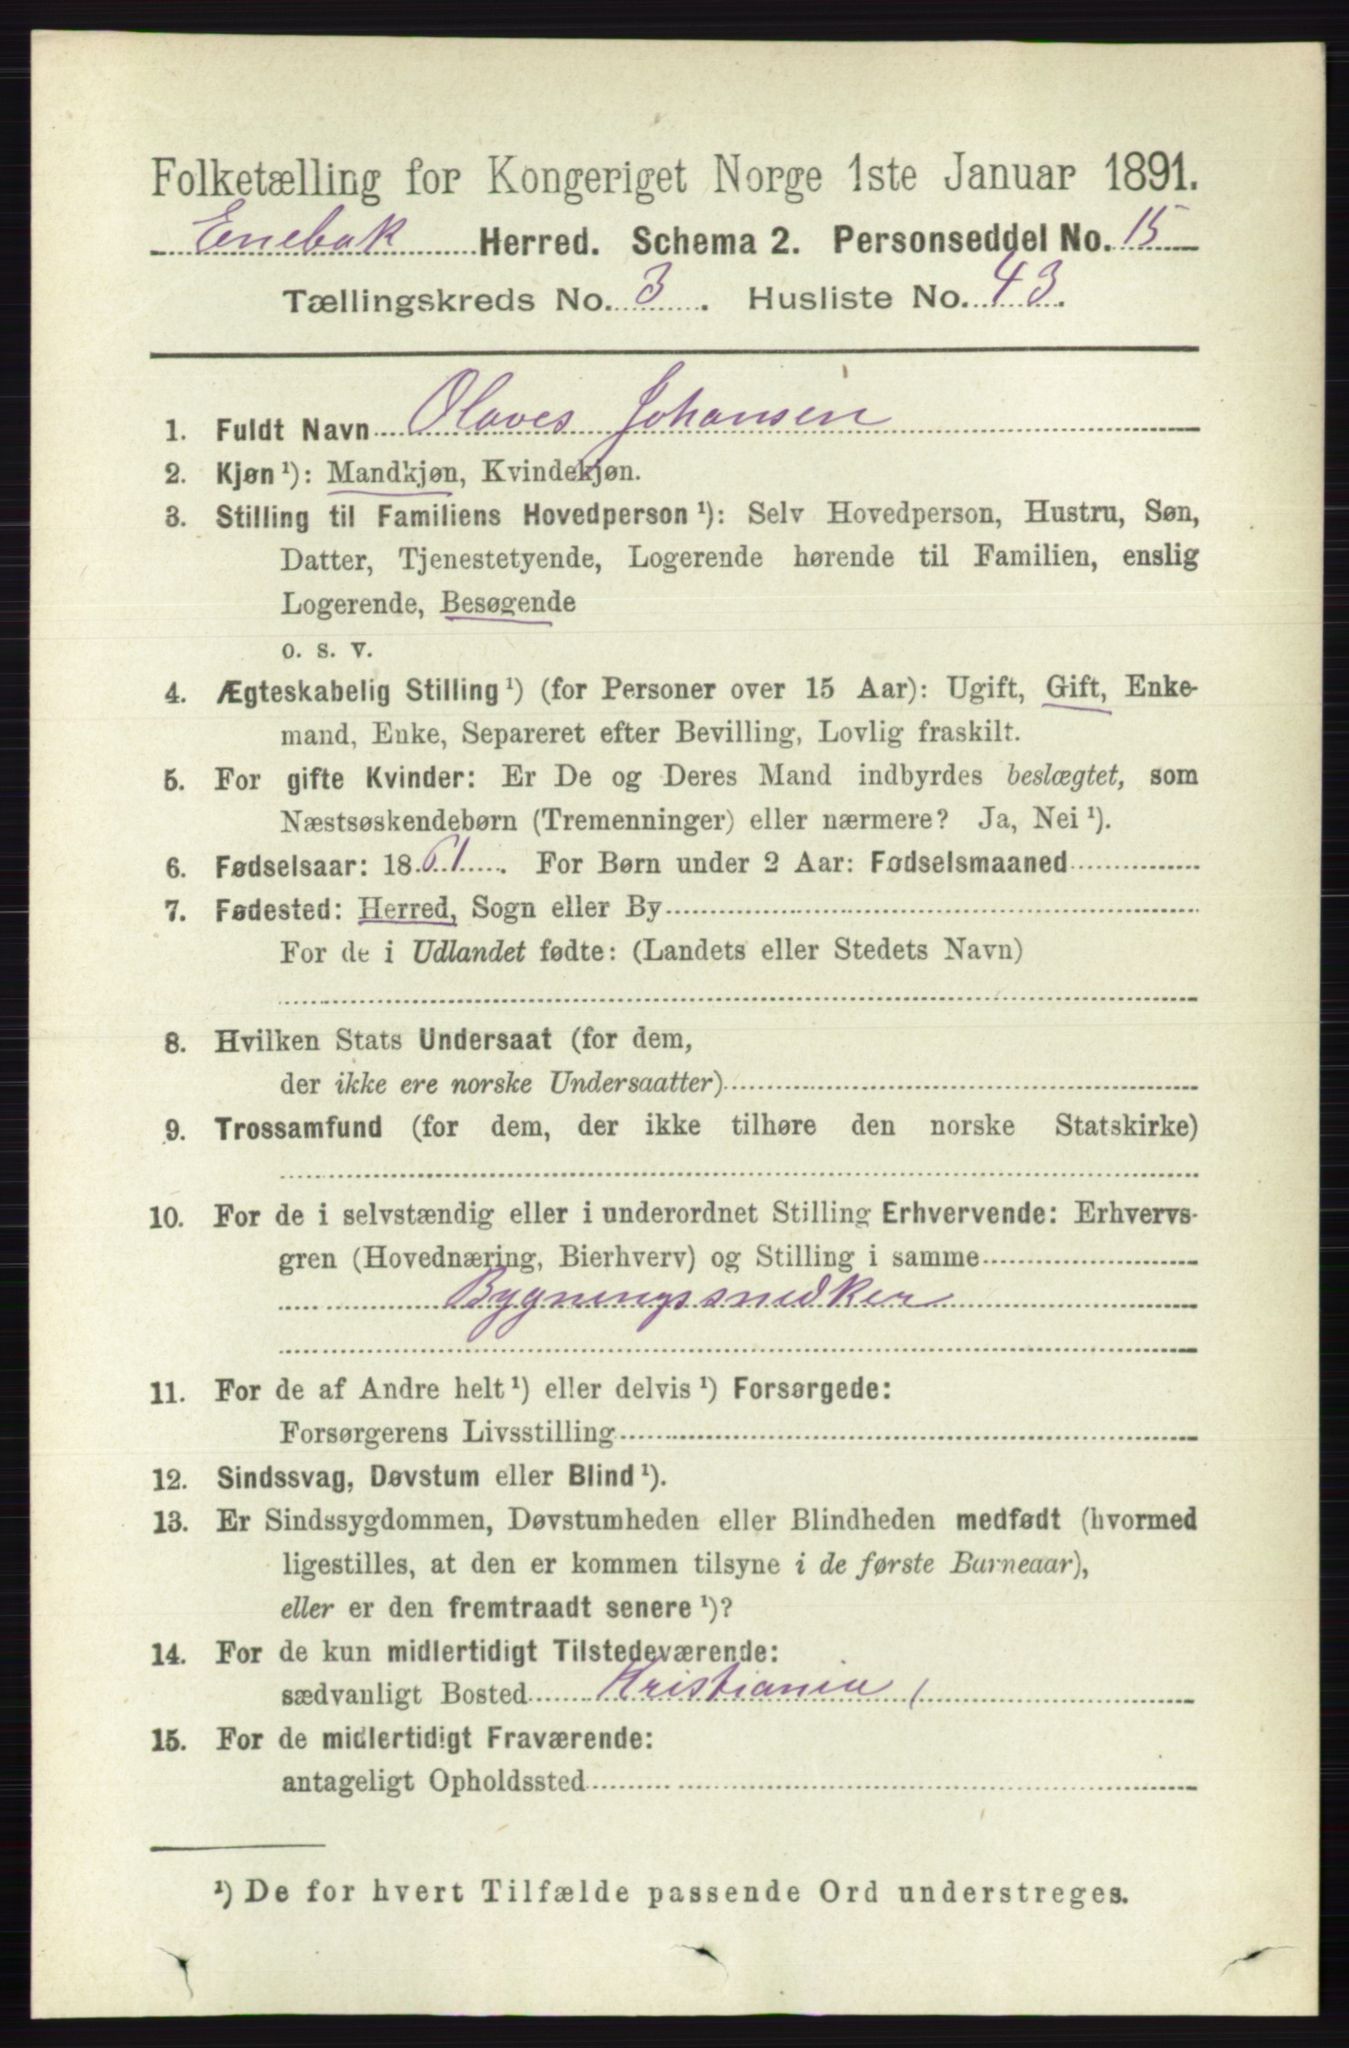 Folketælling for Kongeriget Norge 1ste Januar 1891.
Enebak Herred. Schema 2. Personseddel No. 15
Tællingskreds No. 3. Husliste No. 43.
1. Fuldt Navn Olaves Johansen
2. Kjøn¹): Mandkjøn, Kvindekjøn.
3. Stilling til Familiens Hovedperson¹): Selv Hovedperson, Hustru, Søn,
Datter, Tjenestetyende, Logerende hørende til Familien, enslig
Logerende, Besøgende
o. s. v.
4. Ægteskabelig Stilling¹) (for Personer over 15 Aar): Ugift, Gift, Enke-
mand, Enke, Separeret efter Bevilling, Lovlig fraskilt.
5. For gifte Kvinder: Er De og Deres Mand indbyrdes beslægtet, som
Næstsøskendebørn (Tremenninger) eller nærmere? Ja, Nei¹).
6. Fødselsaar: 1861. For Børn under 2 Aar: Fødselsmaaned
7. Fødested: Herred, Sogn eller By
For de i Udlandet fødte: (Landets eller Stedets Navn)
8. Hvilken Stats Undersaat (for dem,
der ikke ere norske Undersaatter)
9. Trossamfund (for dem, der ikke tilhøre den norske Statskirke)
10. For de i selvstændig eller i underordnet Stilling Erhvervende: Erhvervs-
gren (Hovednæring, Bierhverv) og Stilling i samme
Bygningssnedker
11. For de af Andre helt¹) eller delvis¹) Forsørgede:
Forsørgerens Livsstilling
12. Sindssvag, Døvstum eller Blind¹).
13. Er Sindssygdommen, Døvstumheden eller Blindheden medfødt (hvormed
ligestilles, at den er kommen tilsyne i de første Barneaar),
eller er den fremtraadt senere¹)?
14. For de kun midlertidigt Tilstedeværende:
sædvanligt Bosted Kristiania
15. For de midlertidigt Fraværende:
antageligt Opholdssted
¹) De for hvert Tilfælde passende Ord understreges.